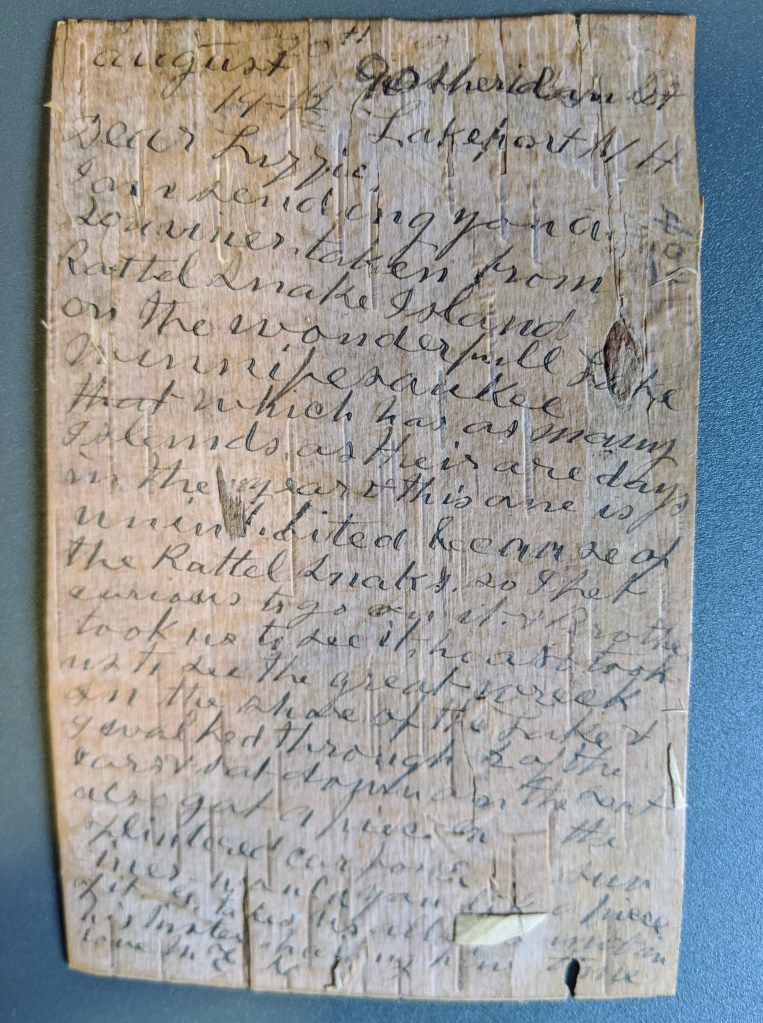 august 20th 90 Sheridan St
19-12 Lakeport N H
Dear Lizzie,
I am sending you a
Souviner taken from
Rattel Snake Island
on the wonderfull Lake
Winnipesaukee
that which has as many
Islands as their are days
in the year & this one is
uninhibited because of
the Rattel Snaks. so I felt
curious to go on it. & Brother
took us to see it, he also took
us to see the great wreck
on the shore of the Lake &
I walked through 2 of the
cars & sat down on the seat
also got a piece the
splintered car
would you like a piece
of it
his Sister having time
love to